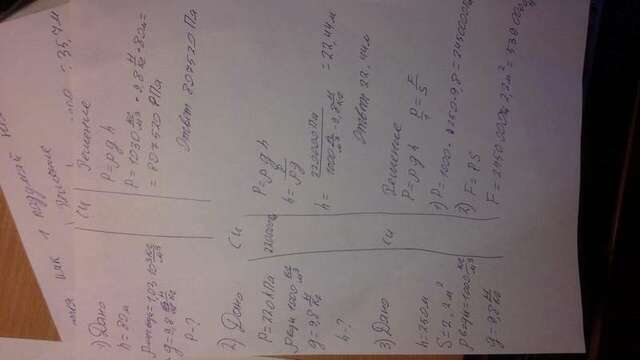 1) Дано
h=80м
g=9,8 Н/кг
P-?
Си
Решение
P=ρgh
P=1030 кг/м³ · 9,8 Н/кг · 80м=
=807520 Па
Ответ 807520 Па
2) Дано
P=220кПа
ρводы 1000 кг/м³
g=9,8 Н/кг
h-?
Си
220000
P=ρgh
h=P/ρg
h= 220000Па / 1000 кг/м³ · 9,8 Н/кг =22,44м
Ответ 22,44м
3) Дано
h=250м
S=2,2м²
ρводы=1000 кг/м³
g=9,8 Н/кг
Си
Решение
P=ρgh P=F/S
1) P=1000·250·9,8=2450000
2) F=PS
F=2450000·2,2м²=5390000